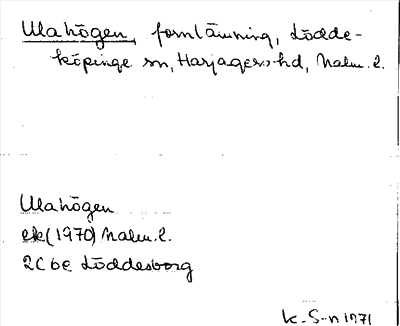 Ulahögen, fornlämning, Lödde-
köpinge sn, Harjagers hd, Malm. l.
Ulahögen
ek (1970) Malm. l.
2C 6e Löddesborg
K. S-n 1971